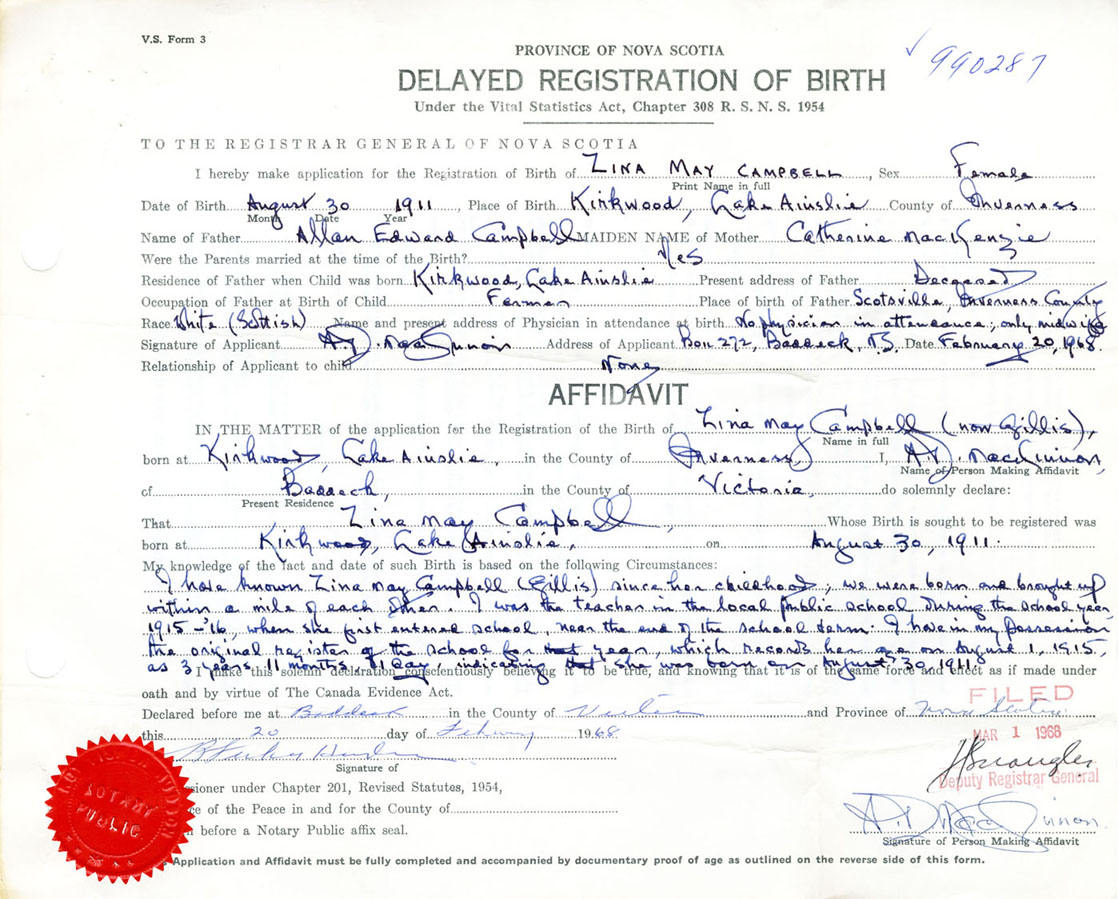 V.S. Form 3
990287
PROVINCE OF NOVA SCOTIA
DELAYED REGISTRATION OF BIRTH
Under the Vital Statistics Act, Chapter 308 R. S. N. S. 1954
TO THE REGISTRAR GENERAL OF NOVA SCOTIA
I hereby make application for the Registration of Birth of ZINA MAY CAMPBELL, Sex Female
Print Name in full
Date of Birth August 30 1911, Place of Birth Kirkwood, Lake Ainslie County of Inverness
Month Date Year
Name of Father Allan Edward Campbell MAIDEN NAME of Mother Catherine MacKenzie
Were the Parents married at the time of the Birth? Yes
Residence of Father when Child was born Kirkwood, Lake Ainslie Present address of Father Deceased
Occupation of Father at Birth of Child Farmer Place of birth of Father Scotsville, Inverness County
Race White (Scottish) Name and present address of Physician in attendance at birth No physician in attendance; only midwife
Signature of Applicant A.D. MacKinnon Address of Applicant Box 272, Baddeck, N.S. Date February 20, 1968.
Relationship of Applicant to child None
AFFIDAVIT
IN THE MATTER of the application for the Registration of the Birth of Zina May Campbell (now Gillis),
Name in full
born at Kirkwood, Lake Ainslie, in the County of Inverness, I, A.D. MacKinnon,
Name of Person Making Affidavit
of Baddeck, in the County of Victoria, do solemnly declare:
Present Residence
That Zina May Campbell, Whose Birth is sought to be registered was
born at Kirkwood, Lake Ainslie, on August 30, 1911.
My knowledge of the fact and date of such Birth is based on the following Circumstances:
I have known Zina May Campbell (Gillis) since her childhood; we were born and brought up
within a mile of each other. I was the teacher in the local public school during the school year
1915-'16, when she first entered school, near the end of the school term. I have in my possession
the original register of the school for that year, which records her age on August 1, 1915,
as 3 years 11 months, 1 day, indicating that she was born on August 30, 1911.
I make this solemn declaration conscientiously believing it to be true, and knowing that it is of the same force and effect as if made under
oath and by virtue of The Canada Evidence Act.
Declared before me at Baddeck in the County of Victoria and Province of Nova Scotia
this 20 day of February 1968
FILED
MAR 1 1968
Deputy Registrar General
Signature of
sioner under Chapter 201, Revised Statutes, 1954,
ce of the Peace in and for the County of
before a Notary Public affix seal.
NOTARY
PUBLIC
A. D. MacKinnon
Signature of Person Making Affidavit
Application and Affidavit must be fully completed and accompanied by documentary proof of age as outlined on the reverse side of this form.